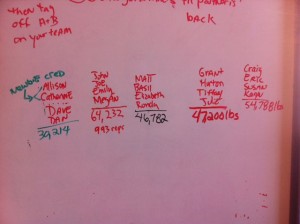 then tag
off A+B
on your team
back
Allison
Catherine
DAVE
DAN
39,214
John
Zoe
Emily
Meagan
64,232
993 reps
MATT
Basil
Elizabeth
Randy
46,782
Grant
Hinton
Tiffany
Julie
47200 lbs
Craig
Eric
Susan
Kegan
54,788 lbs